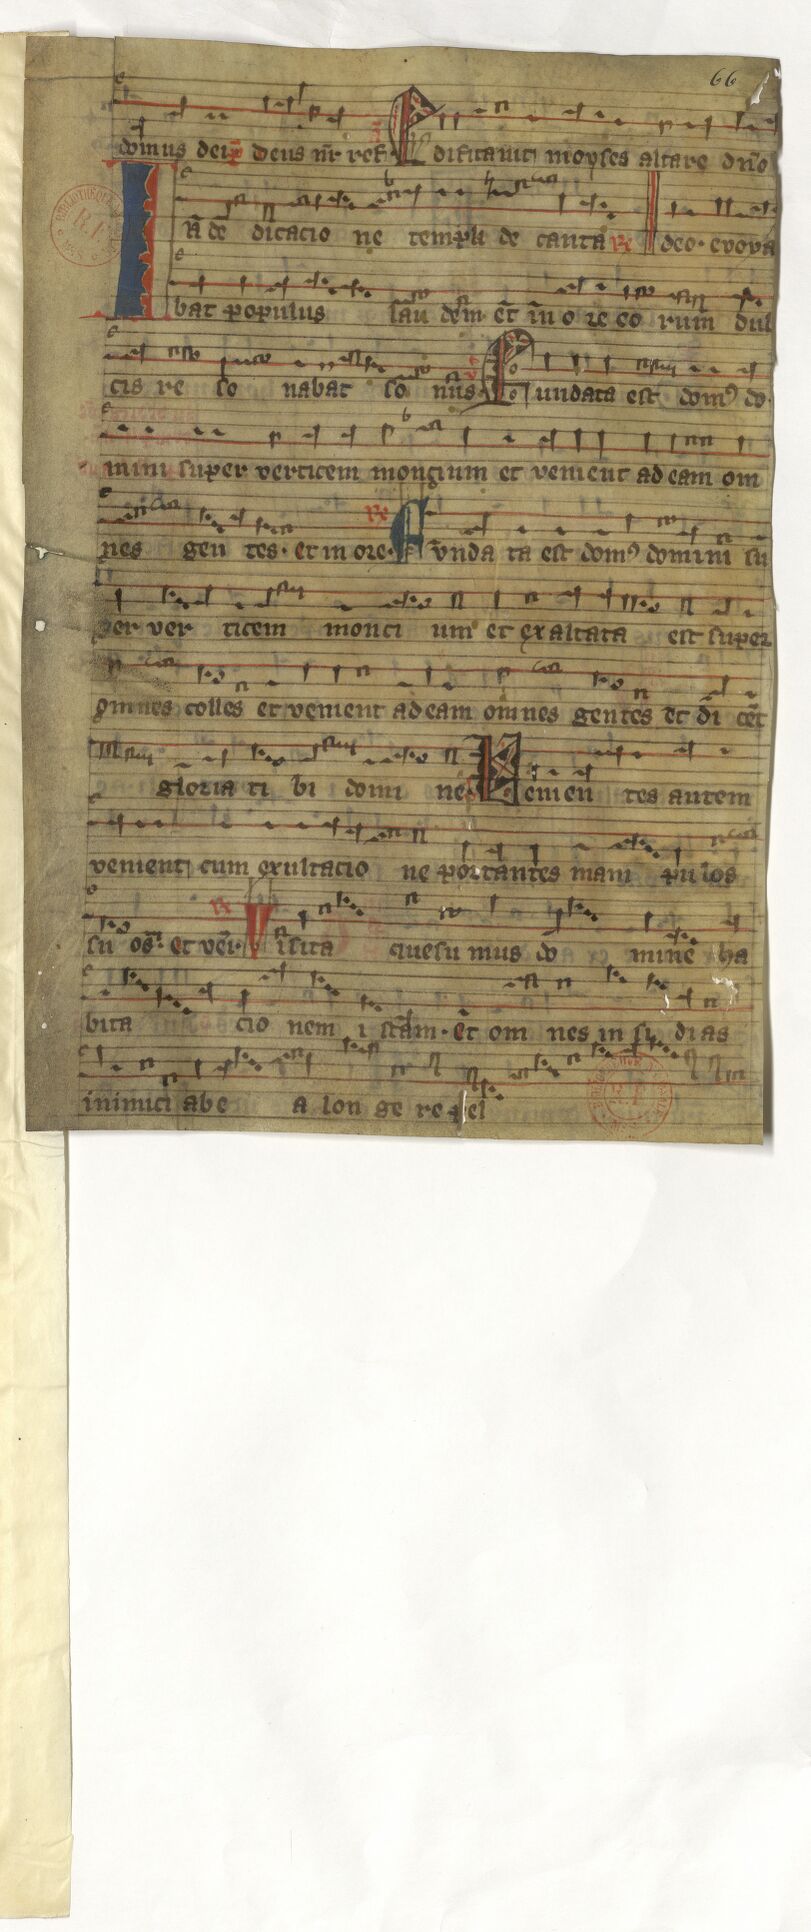 66
domus dei ps deus nr̄ ref. Edificauit moyses altare dn̄o
deo. evova R̃ In dedicacio ne templi de canta
bat populus lau dem. et̄ in o re eo rum dul
cis re so nabat so nus. v̄ Fundata est dom⁹ do
mini super verticem montium et venient ad eam om
nes gen tes. et in ore. R̃ Funda ta est dom⁹ domini su
per ver ticem monti um et exaltata est super
omnes colles et venient ad eam omnes gentes et di cēt
gloria ti bi domi ne. v̄ Venien tes autem
venient cum exultacio ne portantes mani pu los
su os. et veñ. R̃ Visita quesu mus do mine ha
bita cio nem i stam. et om nes in sy dias
inimici abe a lon ge re pel
BIBLIOTHÈQUE
R.F.
MSS